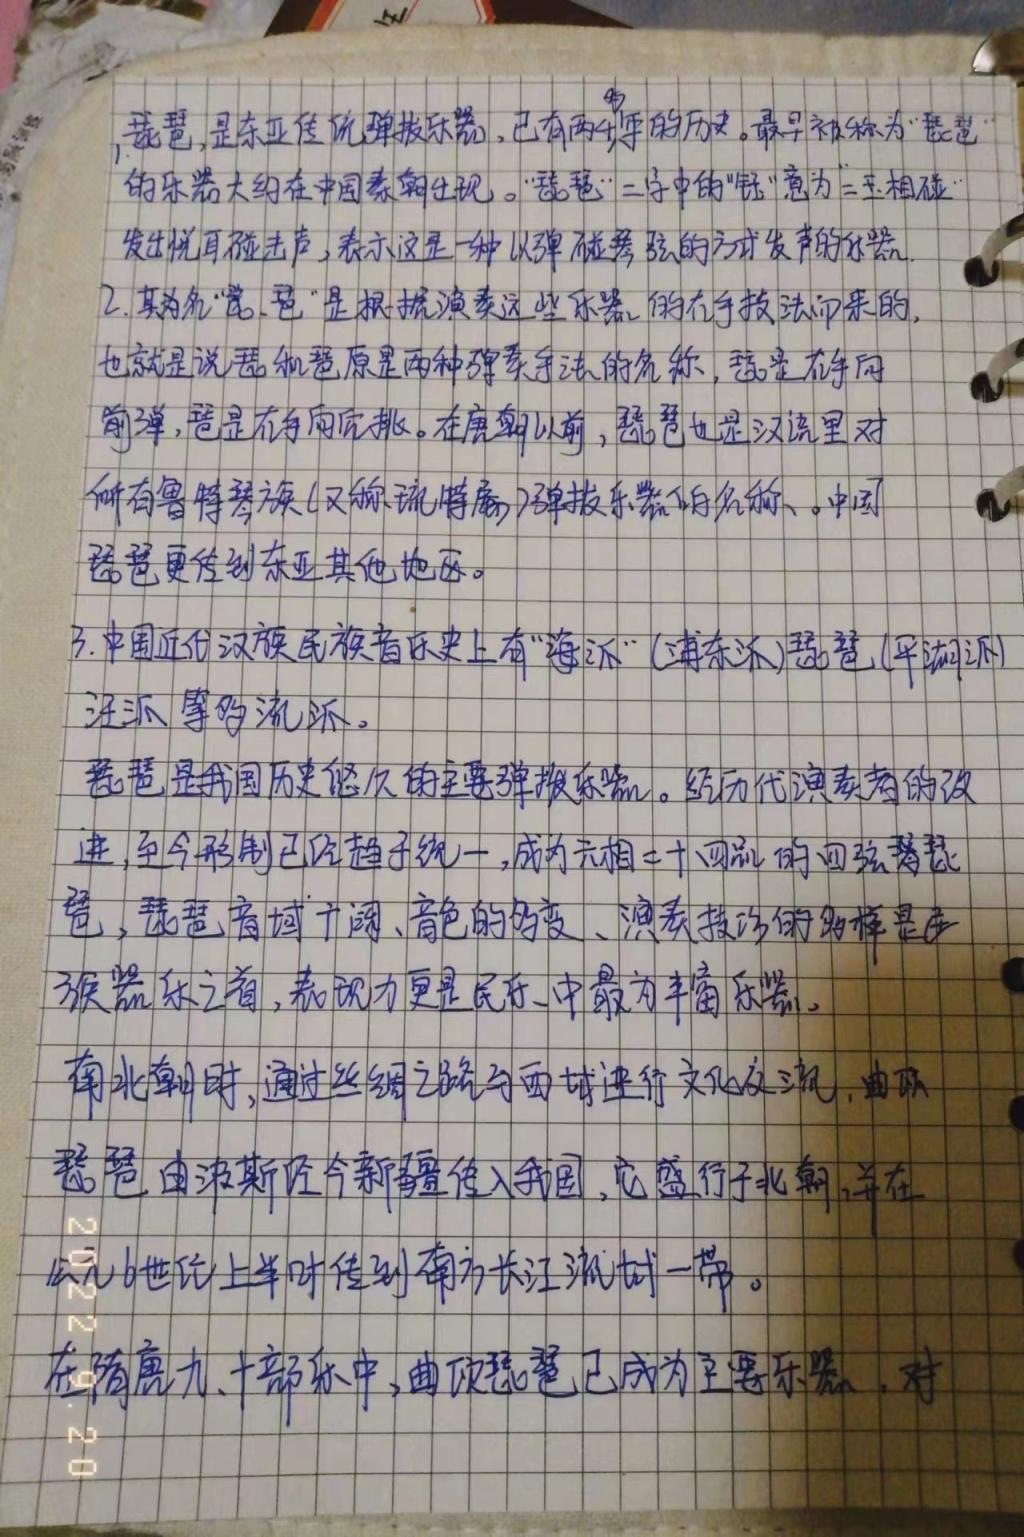 1.琵琶,是东亚传统弹拨乐器,已有两千多年的历史。最早被称为"琵琶"
的乐器大约在中国秦朝出现。"琵琶"二字中的"珏"意为"二玉相碰"
发出悦耳碰击声,表示这是一种以弹碰琴弦的方式发声的乐器.
2.其名"琵、琶"是根据演奏这些乐器的右手技法而来的,
也就是说琵和琶原是两种弹奏手法的名称,琵是右手向
前弹,琶是右手向后挑。在唐朝以前,琵琶也是汉语里对
所有鲁特琴族(又称琉特属)弹拨乐器的名称、。中国
琵琶更传到东亚其他地区。
3.中国近代汉族民族音乐史上有"海派"(浦东派)琵琶(平湖派)
汪派等多流派。
琵琶是我国历史悠久的主要弹拨乐器。经历代演奏者的改
进,至今形制已经趋于统一,成为六相二十四品的四弦琵
琶,琵琶音域广阔、音色的多变、演奏技巧的多样是
弹器乐之首,表现力更是民乐、中最为丰富乐器。
南北朝时,通过丝绸之路与西域进行文化交流,曲项
琵琶由波斯经今新疆传入我国,它盛行于北朝,并在
公元6世纪上半叶传到南方长江流域一带。
在隋唐九、十部乐中,曲项琵琶已成为主要乐器,对
2022.9.20